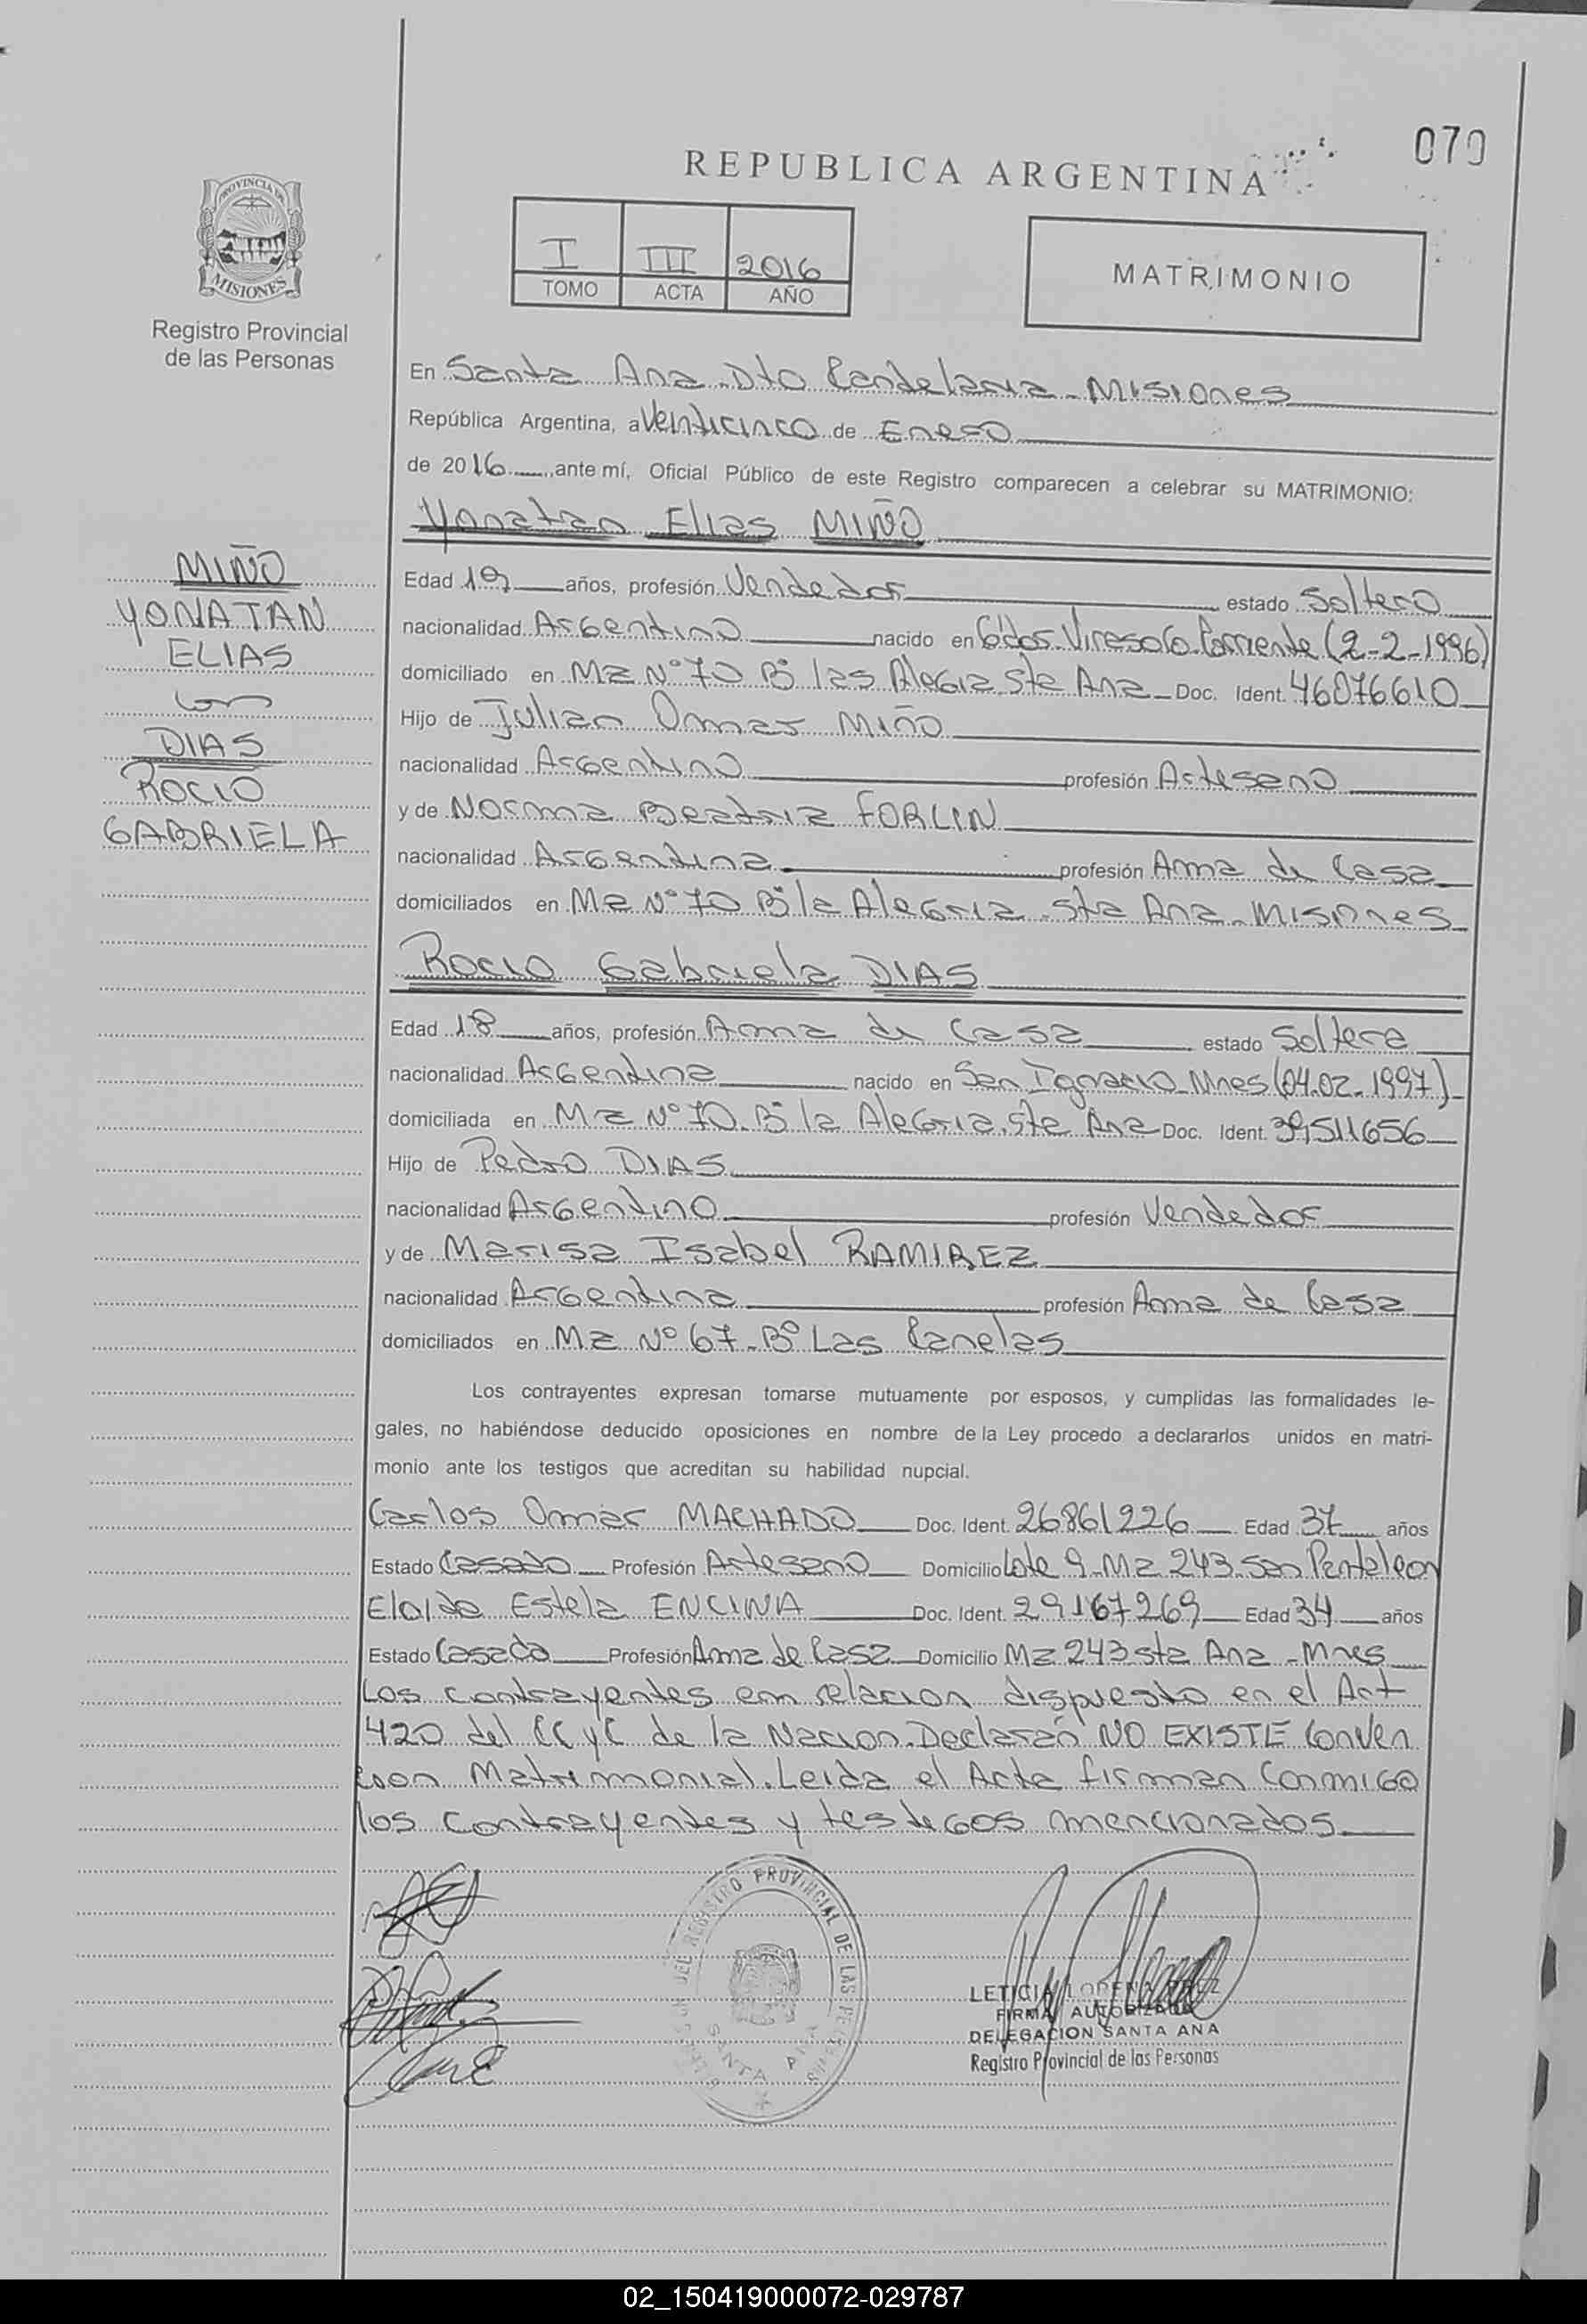 070
REPUBLICA ARGENTINA
PROVINCIA DE
MISIONES
Registro Provincial
de las Personas
I III 2016
TOMO ACTA AÑO
MATRIMONIO
En Santa Ana. Dto Candelaria - Misiones
República Argentina, a Veinticinco de Enero
de 2016, ante mí, Oficial Público de este Registro comparecen a celebrar su MATRIMONIO:
Yonatan Elias MIÑO
MIÑO
YONATAN
ELIAS
con
DIAS
ROCIO
GABRIELA
Edad 19 años, profesión Vendedor estado Soltero
nacionalidad Argentino nacido en Gdor. Virasoro. Corriente (2-2-1996)
domiciliado en Mz Nº 70 Bº las Alegria Sta Ana - Doc. Ident. 46076610
Hijo de Julian Omar MIÑO
nacionalidad Argentino profesión Artesano
y de Norma Beatriz FORLIN
nacionalidad Argentina profesión Ama de Casa
domiciliados en Mz Nº 70 Bº la Alegria. Sta Ana - Misiones
Rocio Gabriela DIAS
Edad 18 años, profesión Ama de Casa estado Soltera
nacionalidad Argentina nacido en San Ignacio - Mnes (04.02-1997)
domiciliada en Mz Nº 70. Bº la Alegria. Sta Ana Doc. Ident. 39511656
Hijo de Pedro DIAS
nacionalidad Argentino profesión Vendedor
y de Marisa Isabel RAMIREZ
nacionalidad Argentina profesión Ama de Casa
domiciliados en Mz Nº 67 - Bº Las Canelas
Los contrayentes expresan tomarse mutuamente por esposos, y cumplidas las formalidades le-
gales, no habiéndose deducido oposiciones en nombre de la Ley procedo a declararlos unidos en matri-
monio ante los testigos que acreditan su habilidad nupcial.
Carlos Omar MACHADO Doc. Ident. 26861226 Edad 37 años
Estado Casado Profesión Artesano Domicilio Lote 9 - Mz 243. San Pantaleon
Eloida Estela ENCINA Doc. Ident. 29167269 Edad 34 años
Estado Casada Profesión Ama de Casa Domicilio Mz 243 Sta Ana - Mnes
Los contrayentes em relacion dispuesto en el Art
420 del CC y C de la Nacion. Declaran NO EXISTE Conven
cion Matrimonial. Leida el Acta firman Conmigo
los Contrayentes y testegos mencionados
REGISTRO PROVINCIAL DE LAS PERSONAS
SANTA ANA
LETICIA LORENA
FIRMA AUTORIZADA
DELEGACION SANTA ANA
Registro Provincial de las Personas
02_150419000072-029787